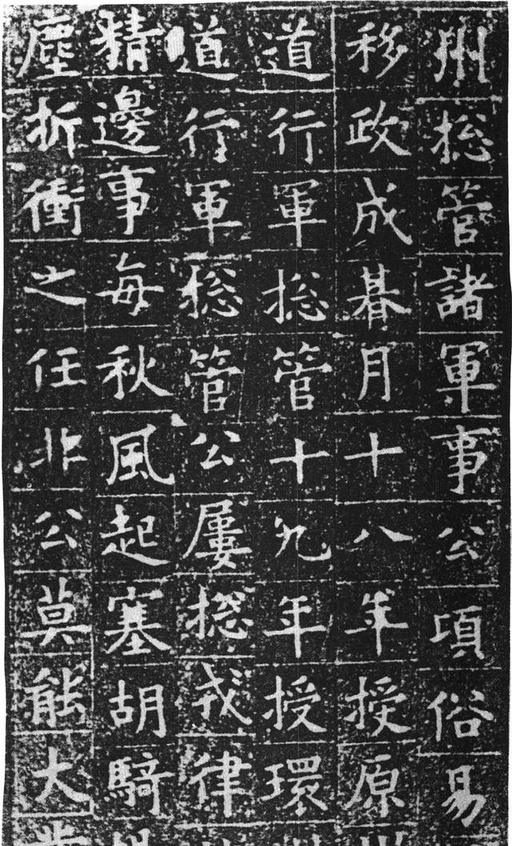 州揔管諸軍事公項俗易
移政成朞月十八年授原
道行軍揔管十九年授環
道行軍揔管公屢揔戎律
猜邊事每秋風起塞胡騎
塵折衝之任非公莫能大